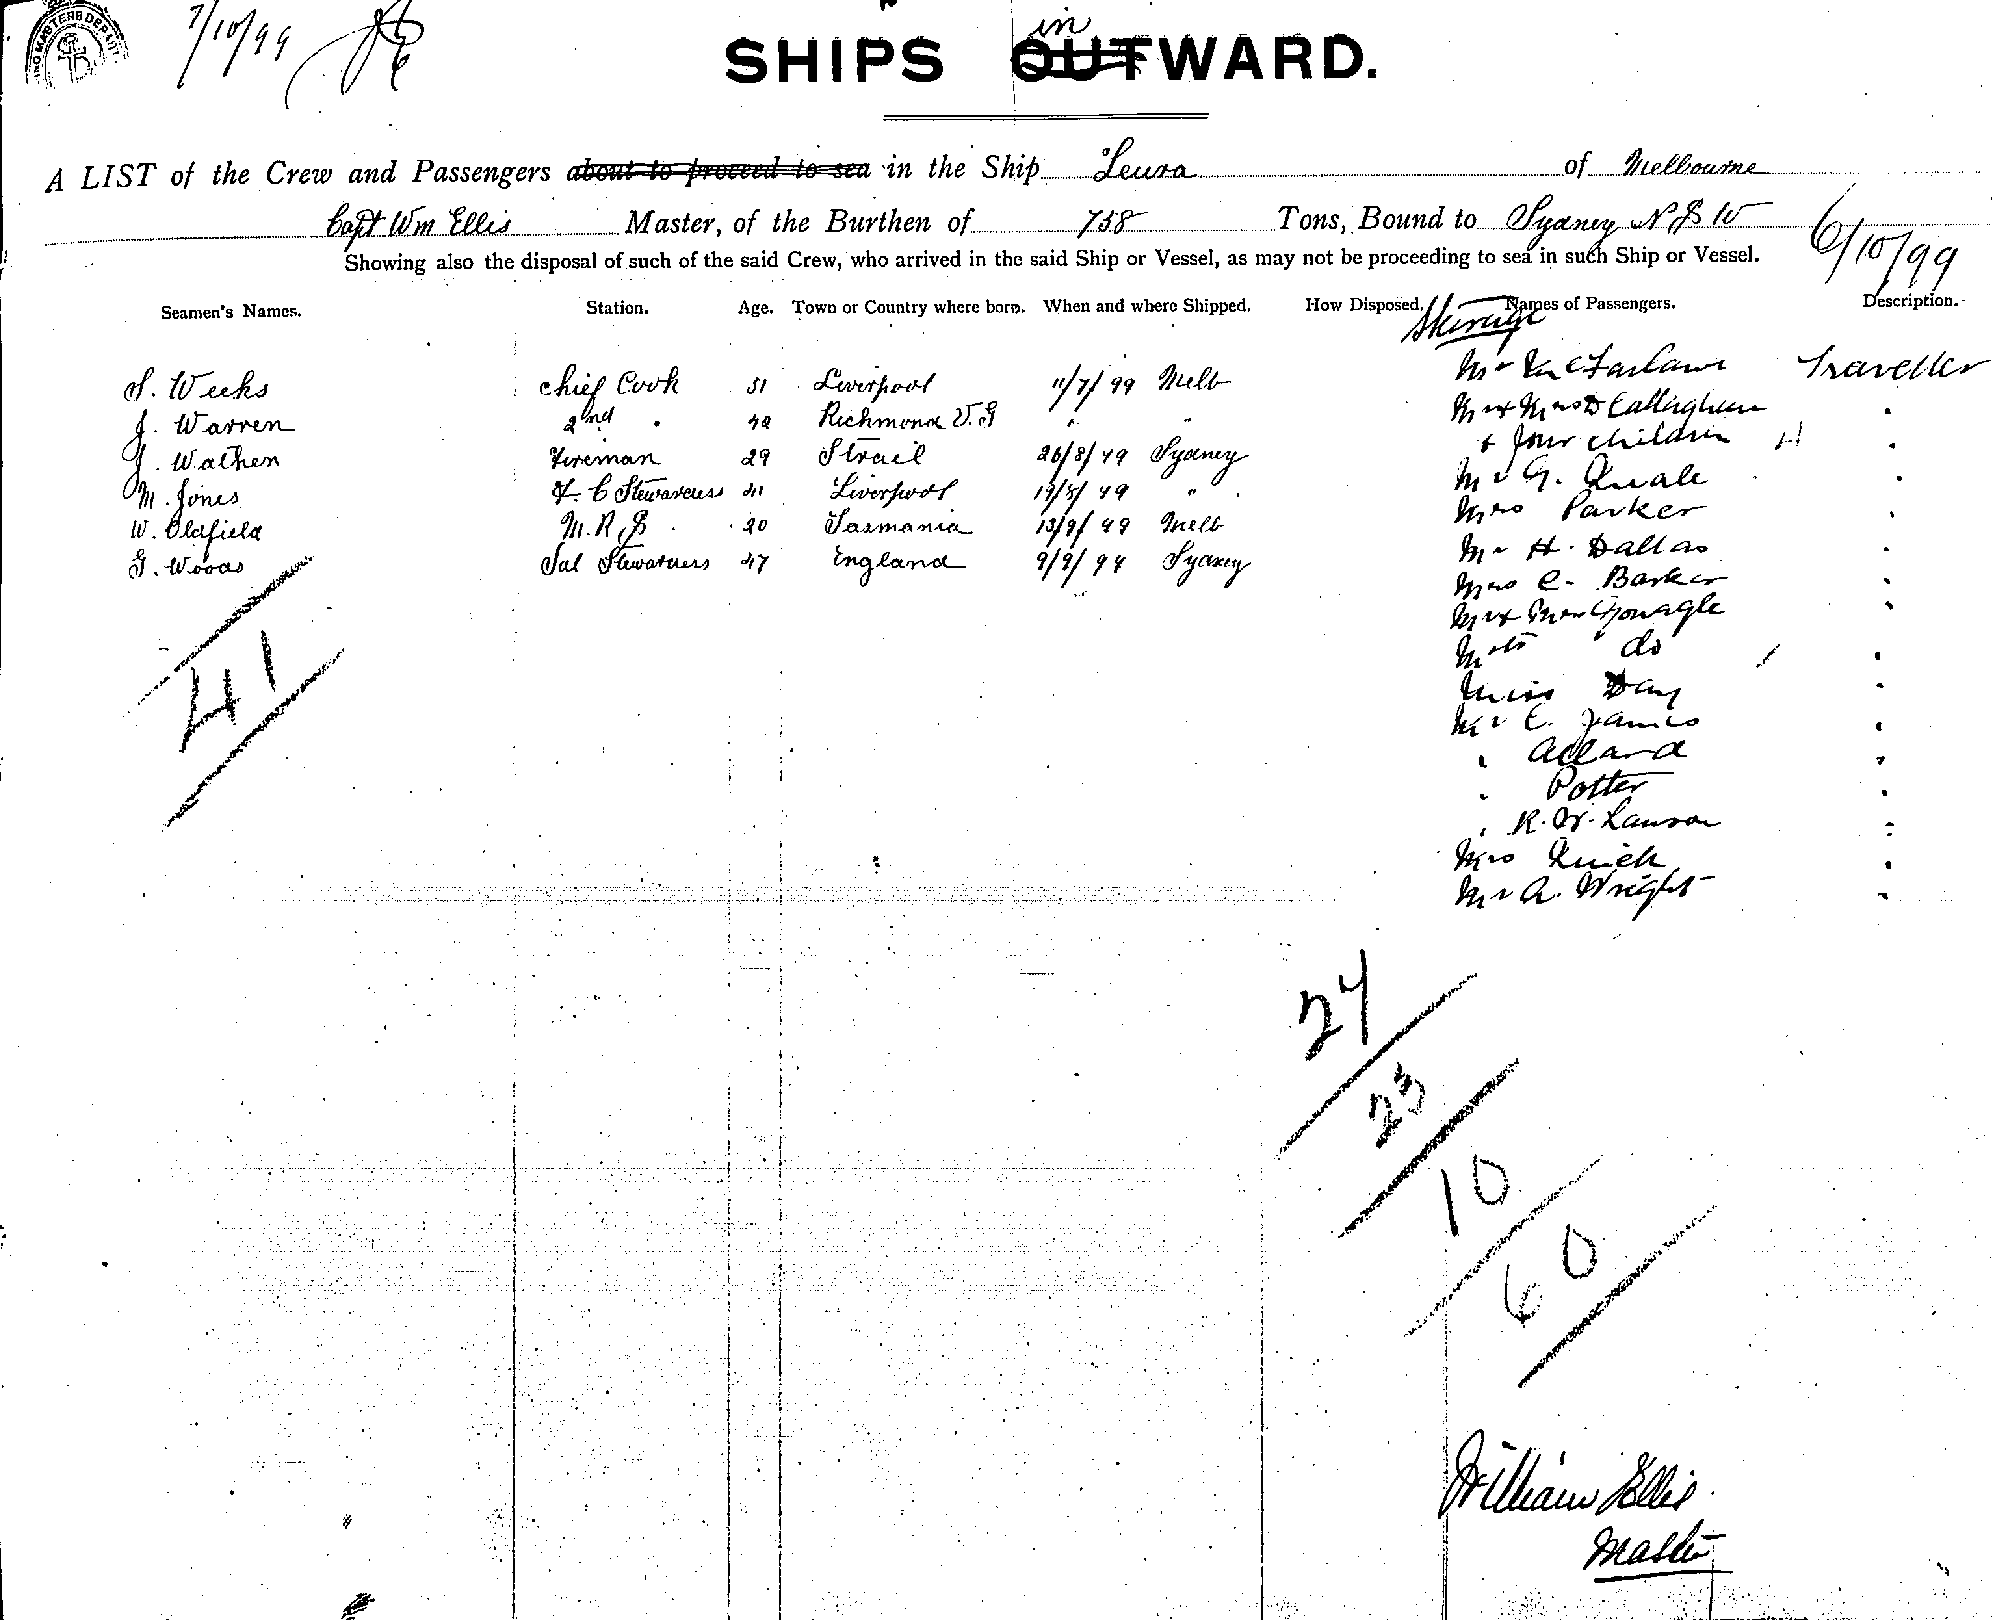 7/10/99
SHIPS OUTWARD.
in
A LIST of the Crew and Passengers about to proceed to sea in the Ship Leura of Melbourne
Capt Wm Ellis Master, of the Burthen of 758 Tons, Bound to Sydney N S W
6/10/99
Showing also the disposal of such of the said Crew, who arrived in the said Ship or Vessel, as may not be proceeding to sea in such Ship or Vessel.
Seamen's Names. Station. Age. Town or Country where born. When and where Shipped. How Disposed. Names of Passengers. Description.
Steerage
S. Weeks Chief Cook 51 Liverpool 11/7/99 Melb
J. Warren 2nd " 42 Richmond " "
J. Wathen Fireman 29 26/8/99 Sydney
M. Jones F. C Stewardess 41 Liverpool 19/5/99 "
W. Oldfield M. R. S 20 Tasmania 13/9/99 Melb
G. Woods Sal Stewardess 47 England 9/9/99 Sydney
41
Mr McFarlane Traveller
Mr & Mrs D Callaghan "
& four children 4 "
Mr G. Quale "
Mrs Parker "
Mr H. Dallas "
Mrs C. Barker "
Mr & Mrs Gonagle "
do 1 "
Miss Day "
Mr E. James "
" Allard "
" Potter "
" R. W. Lawson "
Mrs Quick "
Mr A. Wright "
24
23
10
60
William Ellis
Master